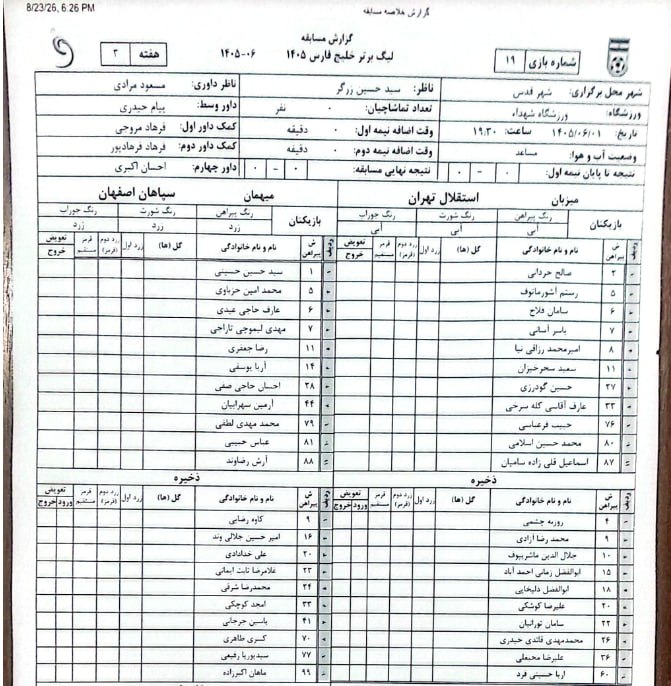 8/23/26, 6:26 PM
گزارش خلاصه مسابقه
گزارش مسابقه
لیگ برتر خلیج فارس ۱۴۰۵ ۰۶-۱۴۰۵
شماره بازی ۱۹
هفته ۳
شهر محل برگزاری: شهر قدس
ناظر: سید حسین زرگر
ناظر داوری: مسعود مرادی
ورزشگاه: ورزشگاه شهداء
تعداد تماشاچیان: ۰ نفر
داور وسط: پیام حیدری
تاریخ: ۱۴۰۵/۰۶/۰۱ ساعت: ۱۹:۳۰
وقت اضافه نیمه اول: ۰ دقیقه
کمک داور اول: فرهاد مروجی
وضعیت آب و هوا: مساعد
وقت اضافه نیمه دوم: ۰ دقیقه
کمک داور دوم: فرهاد فرهادپور
نتیجه تا پایان نیمه اول: ۰ - ۰
نتیجه نهایی مسابقه: ۰ - ۰
داور چهارم: احسان اکبری
میزبان استقلال تهران
بازیکنان
رنگ پیراهن رنگ شورت رنگ جوراب
آبی آبی آبی
ردیف ش پیراهن نام و نام خانوادگی گل (ها) زرد اول زرد دوم (قرمز) قرمز مستقیم تعویض خروج
۲ صالح حردانی
۵ رستم آشورماتوف
۶ سامان فلاح
۷ یاسر آسانی
۸ امیرمحمد رزاقی نیا
۱۱ سعید سحرخیزان
۲۷ حسین گودرزی
۳۳ عارف آقاسی کله سرخی
۷۶ حبیب فرعباسی
۸۰ محمد حسین اسلامی
۸۷ اسماعیل قلی زاده سامیان
ذخیره
ردیف ش پیراهن نام و نام خانوادگی گل (ها) زرد اول زرد دوم (قرمز) قرمز مستقیم تعویض ورود خروج
۴ روزبه چشمی
۹ محمد رضا آزادی
۱۰ جلال الدین ماشریپوف
۱۵ ابوالفضل زمانی احمد آباد
۱۸ ابوالفضل ذلیخایی
۲۰ علیرضا کوشکی
۲۲ سامان تورانیان
۲۶ محمدمهدی قائدی حیدری
۳۶ علیرضا محبعلی
۶۰ آریا حسینی فرد
میهمان سپاهان اصفهان
بازیکنان
رنگ پیراهن رنگ شورت رنگ جوراب
زرد زرد زرد
ردیف ش پیراهن نام و نام خانوادگی گل (ها) زرد اول زرد دوم (قرمز) قرمز مستقیم تعویض خروج
۱ سید حسین حسینی
۵ محمد امین حزباوی
۶ عارف حاجی عیدی
۷ مهدی لیموچی تاراجی
۱۱ رضا جعفری
۱۴ آریا یوسفی
۲۸ احسان حاجی صفی
۴۴ آرمین سهرابیان
۷۹ محمد مهدی لطفی
۸۱ عباس حبیبی
۸۸ آرش رضاوند
ذخیره
ردیف ش پیراهن نام و نام خانوادگی گل (ها) زرد اول زرد دوم (قرمز) قرمز مستقیم تعویض ورود خروج
۹ کاوه رضایی
۱۶ امیر حسین جلالی وند
۲۰ علی خدادادی
۲۳ غلامرضا ثابت ایمانی
۲۴ محمدرضا شرفی
۳۳ امجد کوچکی
۴۱ یاسین جرجانی
۷۰ کسری طاهری
۷۷ سیدپوریا رفیعی
۹۹ ماهان اکبرزاده